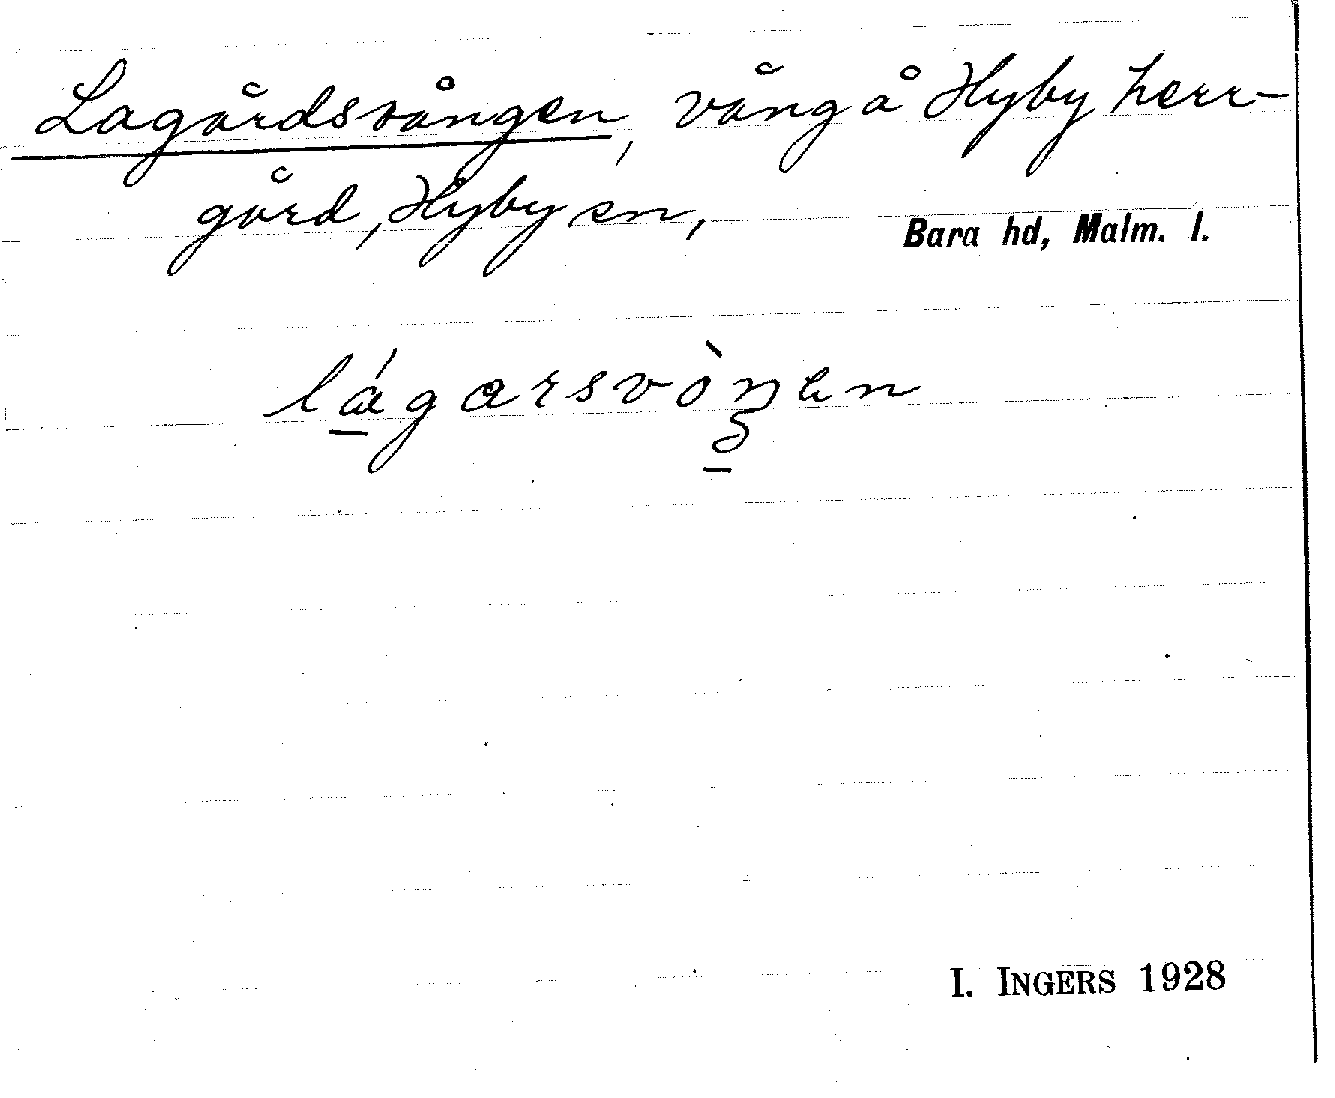 Lagårdsvången, vång å Hyby herr-
gård, Hyby sn, Bara hd, Malm. l.
lágarsvòŋen
I. INGERS 1928